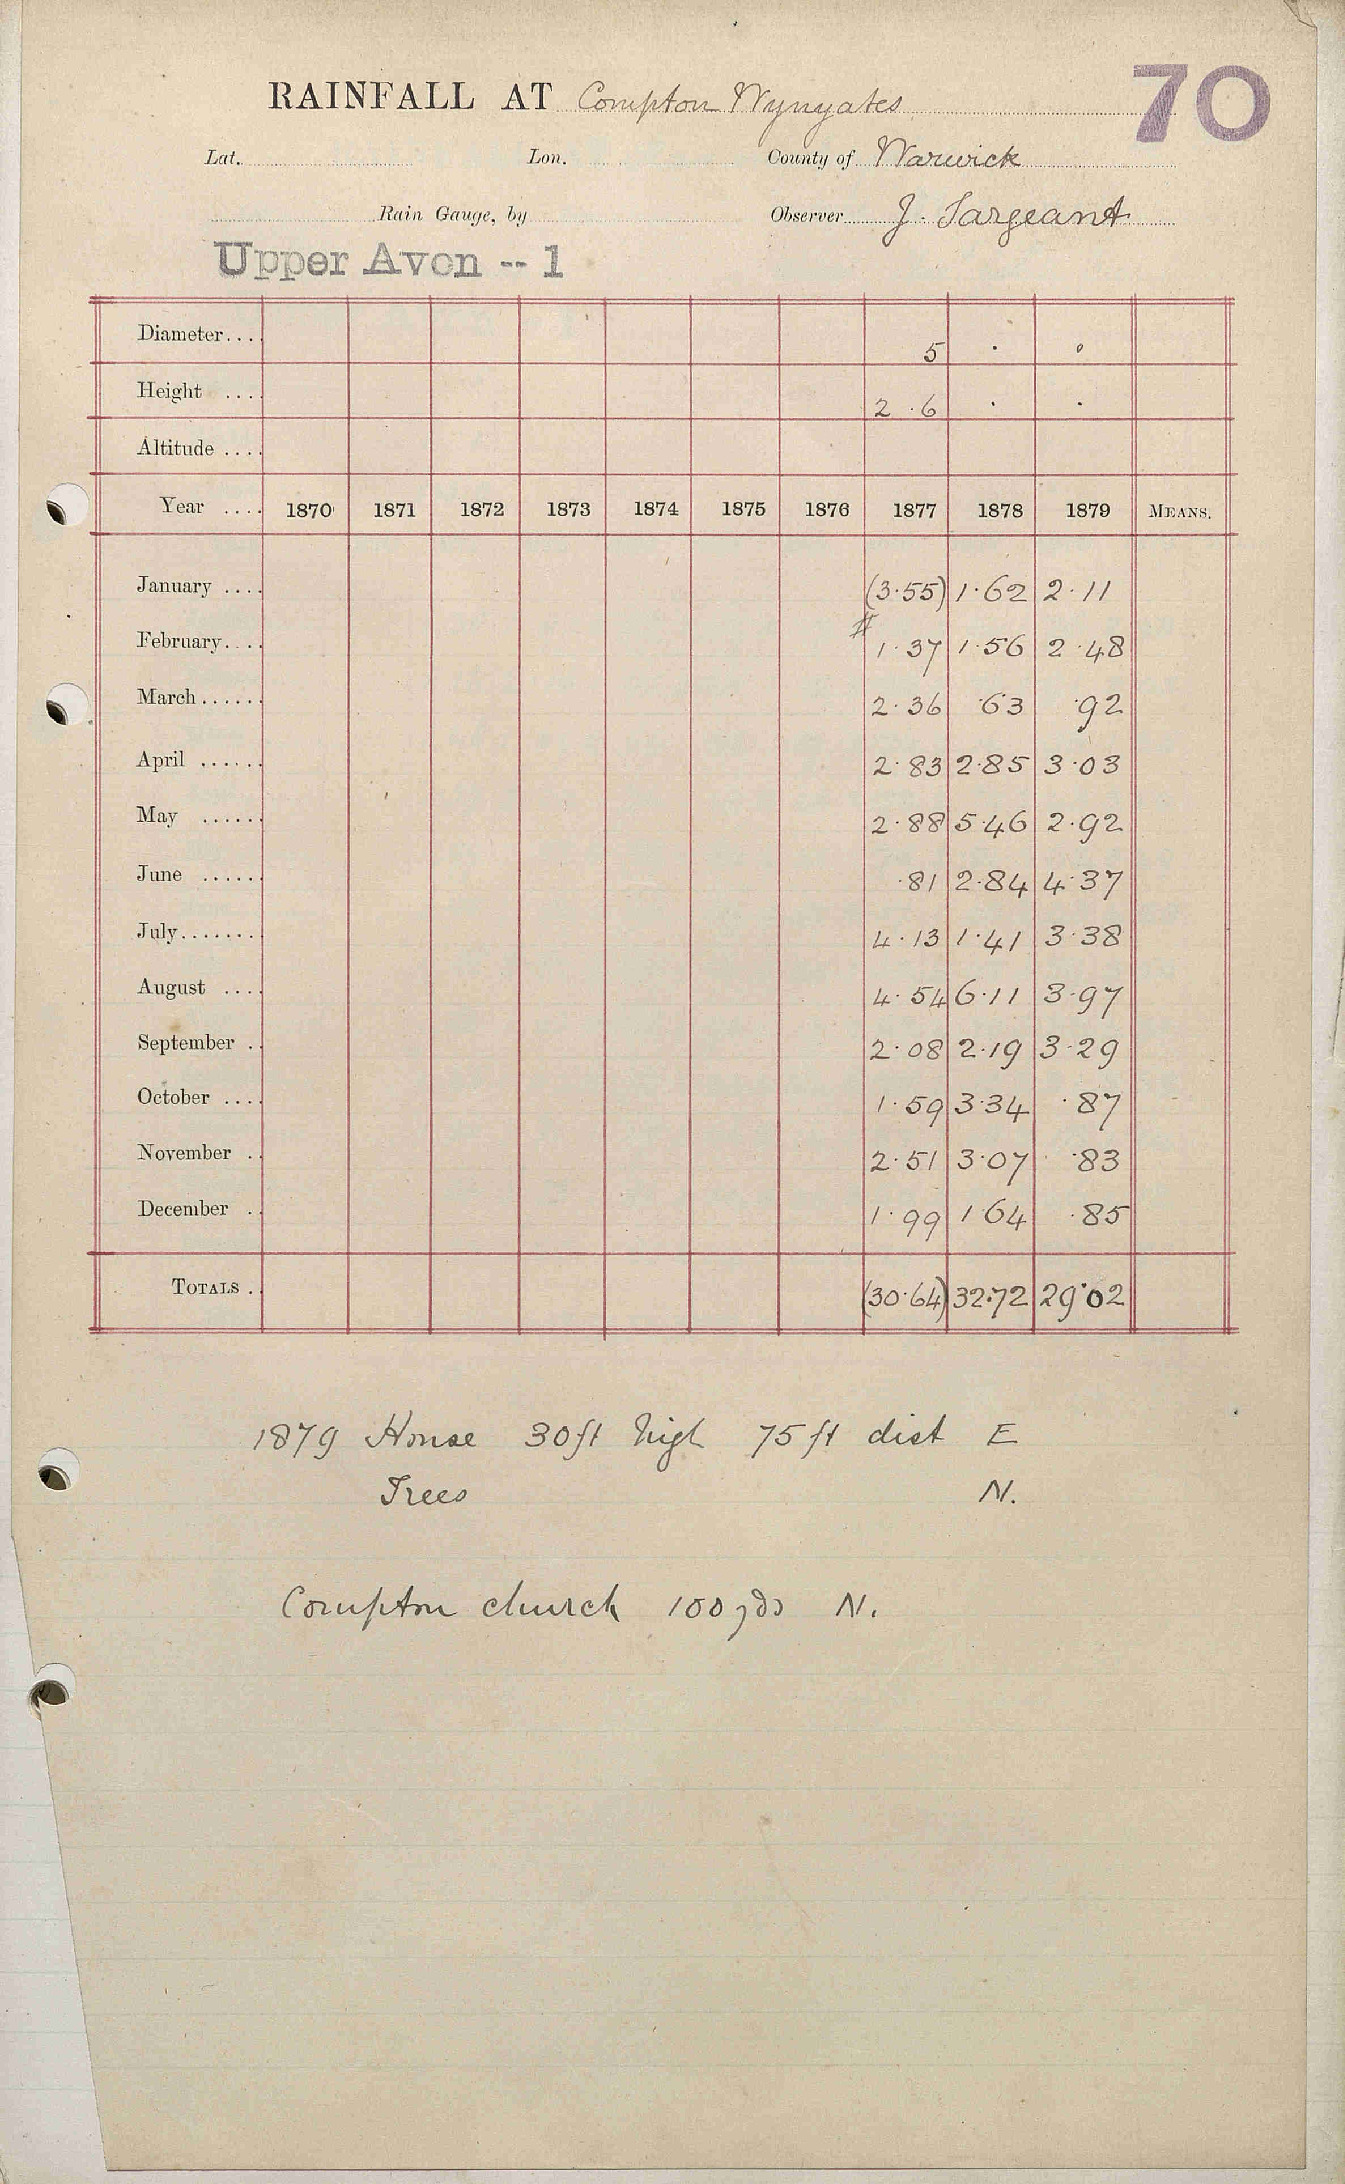 70
RAINFALL AT Compton Wynyates
Lat. Lon. County of Warwick
Rain Gauge, by Observer J. Sargeant
Upper Avon -- 1
Diameter.... 5 · ·
Height .... 2 . 6 · ·
Altitude ....
Year .... 1870 1871 1872 1873 1874 1875 1876 1877 1878 1879 MEANS.
January .... (3·55) 1·62 2·11
February.... # 1·37 1·56 2·48
March...... 2·36 ·63 ·92
April ...... 2·83 2·85 3·03
May ...... 2·88 5·46 2·92
June ...... ·81 2·84 4·37
July....... 4·13 1·41 3·38
August .... 4·54 6·11 3·97
September .. 2·08 2·19 3·29
October .... 1·59 3·34 ·87
November .. 2·51 3·07 ·83
December .. 1·99 1·64 ·85
TOTALS .. (30·64) 32·72 29·02
1879 House 30ft high 75 ft dist E
Trees N.
Compton church 100 yds N.